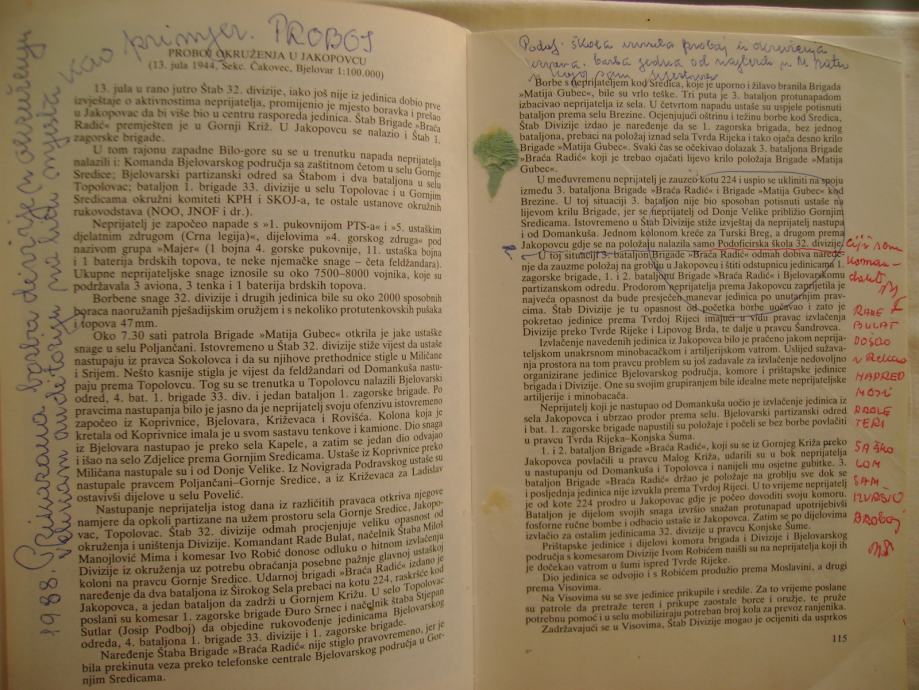 1988. Prikazana borba divizije u okruženju
na licu mjesta kao primjer. PROBOJ
PROBOJ OKRUŽENJA U JAKOPOVCU
(13. jula 1944, Sekc. Čakovec, Bjelovar 1:100.000)
13. jula u rano jutro Štab 32. divizije, iako još nije iz jedinica dobio prve
izvještaje o aktivnostima neprijatelja, promijenio je mjesto boravka i prešao
u Jakopovac da bi više bio u centru rasporeda jedinica. Štab Brigade »Braća
Radić« premješten je u Gornji Križ. U Jakopovcu se nalazio i Štab 1.
zagorske brigade.
U tom rajonu zapadne Bilo-gore su se u trenutku napada neprijatelja
nalazili i: Komanda Bjelovarskog područja sa zaštitnom četom u selu Gornje
Sredice; Bjelovarski partizanski odred sa Štabom i dva bataljona u selu
Topolovac; bataljon 1. brigade 33. divizije u selu Topolovac i u Gornjim
Sredicama okružni komiteti KPH i SKOJ-a, te ostale ustanove okružnih
rukovodstava (NOO, JNOF i dr.).
Neprijatelj je započeo napade s »1. pukovnijom PTS-a« i »5. ustaškim
djelatnim zdrugom (Crna legija)«, dijelovima »4. gorskog zdruga« pod
nazivom grupa »Majer« (1 bojna 4. gorske pukovnije, 11. ustaška bojna
i 1 baterija brdskih topova, te neke njemačke snage – četa feldžandara).
Ukupne neprijateljske snage iznosile su oko 7500–8000 vojnika, koje su
podržavala 3 aviona, 3 tenka i 1 baterija brdskih topova.
Borbene snage 32. divizije i drugih jedinica bile su oko 2000 sposobnih
boraca naoružanih pješadijskim oružjem i s nekoliko protutenkovskih pušaka
i topova 47 mm.
Oko 7.30 sati patrola Brigade »Matija Gubec« otkrila je jake ustaške
snage u selu Poljančani. Istovremeno u Štab 32. divizije stiže vijest da ustaše
nastupaju iz pravca Sokolovca i da su njihove prethodnice stigle u Miličane
i Srijem. Nešto kasnije stigla je vijest da feldžandari od Domankuša nastu-
paju prema Topolovcu. Tog su se trenutka u Topolovcu nalazili Bjelovarski
odred, 4. bat. 1. brigade 33. div. i jedan bataljon 1. zagorske brigade. Po
pravcima nastupanja bilo je jasno da je neprijatelj svoju ofenzivu istovremeno
započeo iz Koprivnice, Bjelovara, Križevaca i Rovišća. Kolona koja je
kretala od Koprivnice imala je u svom sastavu tenkove i kamione. Dio snaga
iz Bjelovara nastupao je preko sela Kapele, a zatim se jedan dio odvajao
i išao na selo Zdjelice prema Gornjim Sredicama. Ustaše iz Koprivnice preko
Miličana nastupale su i od Donje Velike. Iz Novigrada Podravskog ustaše su
nastupale pravcem Poljančani–Gornje Sredice, a iz Križevaca za Ladislav
ostavivši dijelove u selu Povelić.
Nastupanje neprijatelja istog dana iz različitih pravaca otkriva njegove
namjere da opkoli partizane na užem prostoru sela Gornje Sredice, Jakopo-
vac, Topolovac. Štab 32. divizije odmah procjenjuje veliku opasnost od
okruženja i uništenja Divizije. Komandant Rade Bulat, načelnik Štaba Miloš
Manojlović Mima i komesar Ivo Robić donose odluku o hitnom izvlačenju
Divizije iz okruženja uz potrebu obraćanja posebne pažnje glavnoj ustaškoj
koloni na pravcu Gornje Sredice. Udarnoj brigadi »Braća Radić« izdano je
naređenje da dva bataljona iz Širokog Sela prebaci na kotu 224, raskršće kod
Jakopovca, a jedan bataljon da zadrži u Gornjem Križu. U selo Topolovac
poslani su komesar 1. zagorske brigade Đuro Srnec i načelnik štaba Stjepan
Sutlar (Josip Podboj) da objedine rukovođenje jedinicama Bjelovarskog
odreda, 4. bataljona 1. brigade 33. divizije i 1. zagorske brigade.
Naređenje Štaba Brigade »Braća Radić« nije stiglo pravovremeno, jer je
bila prekinuta veza preko telefonske centrale Bjelovarskog područja u Gor-
njim Sredicama.
Podof. škola proboj iz okruženja
borba jedna od najtežih u
u kojoj sam
Borbe s neprijateljem kod Sredica, koje je uporno i žilavo branila Brigada
»Matija Gubec«, bile su vrlo teške. Tri puta je 3. bataljon protunapadom
izbacivao neprijatelja iz sela. U četvrtom napadu ustaše su uspjele potisnuti
bataljon prema selu Brezine. Ocjenjujući oštrinu i težinu borbe kod Sredica,
Štab Divizije izdao je naređenje da se 1. zagorska brigada, bez jednog
bataljona, prebaci na položaj iznad sela Tvrda Rijeka i tako ojača desno krilo
Brigade »Matija Gubec«. Svaki čas se očekivao dolazak 3. bataljona Brigade
»Braća Radić« koji je trebao ojačati lijevo krilo položaja Brigade »Matija
Gubec«.
U međuvremenu neprijatelj je zauzeo kotu 224 i uspio se uklinati na spoju
između 3. bataljona Brigade »Braća Radić« i Brigade »Matija Gubec« kod
Brezine. U toj situaciji 3. bataljon nije bio sposoban potisnuti ustaše na
lijevom krilu Brigade, jer se neprijatelj od Donje Velike približio Gornjim
Sredicama. Istovremeno u Štab Divizije stiže izvještaj da neprijatelj nastupa
i od Domankuša. Jednom kolonom kreće za Turski Breg, a drugom prema
Jakopovcu gdje se na položaju nalazila samo Podoficirska škola 32. divizije.
U toj situaciji 3. bataljon Brigade »Braća Radić« odmah dobiva naređe-
nje da zauzme položaj na groblju u Jakopovcu i štiti odstupnicu jedinicama 1.
zagorske brigade, 1. i 2. bataljonu Brigade »Braća Radić« i Bjelovarskom
partizanskom odredu. Prodorom neprijatelja prema Jakopovcu zaprijetila je
najveća opasnost da bude presječen manevar jedinica po unutarnjim prav-
cima. Štab Divizije je tu opasnost od početka borbe uočavao i zato je
pokretao jedinice prema Tvrdoj Rijeci imajući u vidu pravac izvlačenja
Divizije preko Tvrde Rijeke i Lipovog Brda, te dalje u pravcu Šandrovca.
Izvlačenje navedenih jedinica iz Jakopovca bilo je praćeno jakom neprija-
teljskom unakrsnom minobacačkom i artiljerijskom vatrom. Uslijed sužava-
nja prostora na tom pravcu problem su još zadavale za izvlačenje nedovoljno
organizirane jedinice Bjelovarskog područja, komore i prištapske jedinice
brigada i Divizije. One su svojim grupiranjem bile idealno mete neprijateljske
artiljerije i minobacača.
Neprijatelj koji je nastupao od Domankuša uočio je izvlačenje jedinica iz
sela Jakopovca i ubrzao prodor prema selu. Bjelovarski partizanski odred
i bat. 1. zagorske brigade napustili su položaje i počeli se bez borbe povlačiti
u pravcu Tvrda Rijeka–Konjska Šuma.
1. i 2. bataljon Brigade »Braća Radić«, koji su se iz Gornjeg Križa preko
Jakopovca povlačili u pravcu Malog Križa, udarili su u bok neprijatelja
u nastupanju od Domankuša i Topolovca i nanijeli mu osjetne gubitke. 3.
bataljon Brigade »Braća Radić« držao je položaje na groblju sve dok se
i posljednja jedinica nije izvukla prema Tvrdoj Rijeci. U to vrijeme neprijatelj
je od kote 224 prodro u Jakopovac gdje je počeo dovoditi svoju komoru.
Bataljon je dijelom svojih snaga izvršio snažan protunapad upotrijebivši
fosforne ručne bombe i odbacio ustaše iz Jakopovca. Zatim se po dijelovima
izvlačio za ostalim jedinicama 32. divizije u pravcu Konjske Šume.
Prištapske jedinice i dijelovi komora brigada i Divizije i Bjelovarskog
područja s komesarom Divizije Ivom Robićem naišli su na neprijatelja koji ih
je dočekao vatrom u šumi ispred Tvrde Rijeke.
Dio jedinica se odvojio i s Robićem produžio prema Moslavini, a drugi
prema Visovima.
Na Visovima su se sve jedinice prikupile i sredile. Za to vrijeme poslane
su patrole da pretraže teren i prikupe zaostale borce i oružje, te je pruže
potrebnu pomoć i u selu mobiliziraju potreban broj kola za prevoz ranjenika.
Zadržavajući se u Visovima, Štab Divizije mogao je ocijeniti da usprkos
115
čiji sam
koman-
dant
RADE
BULAT
DOŠAO
I REKAO
NAPRED
MOJI
PROLE
TERI
SA ŠKO
LOM
SAM
IZVRŠIO
PROBOJ